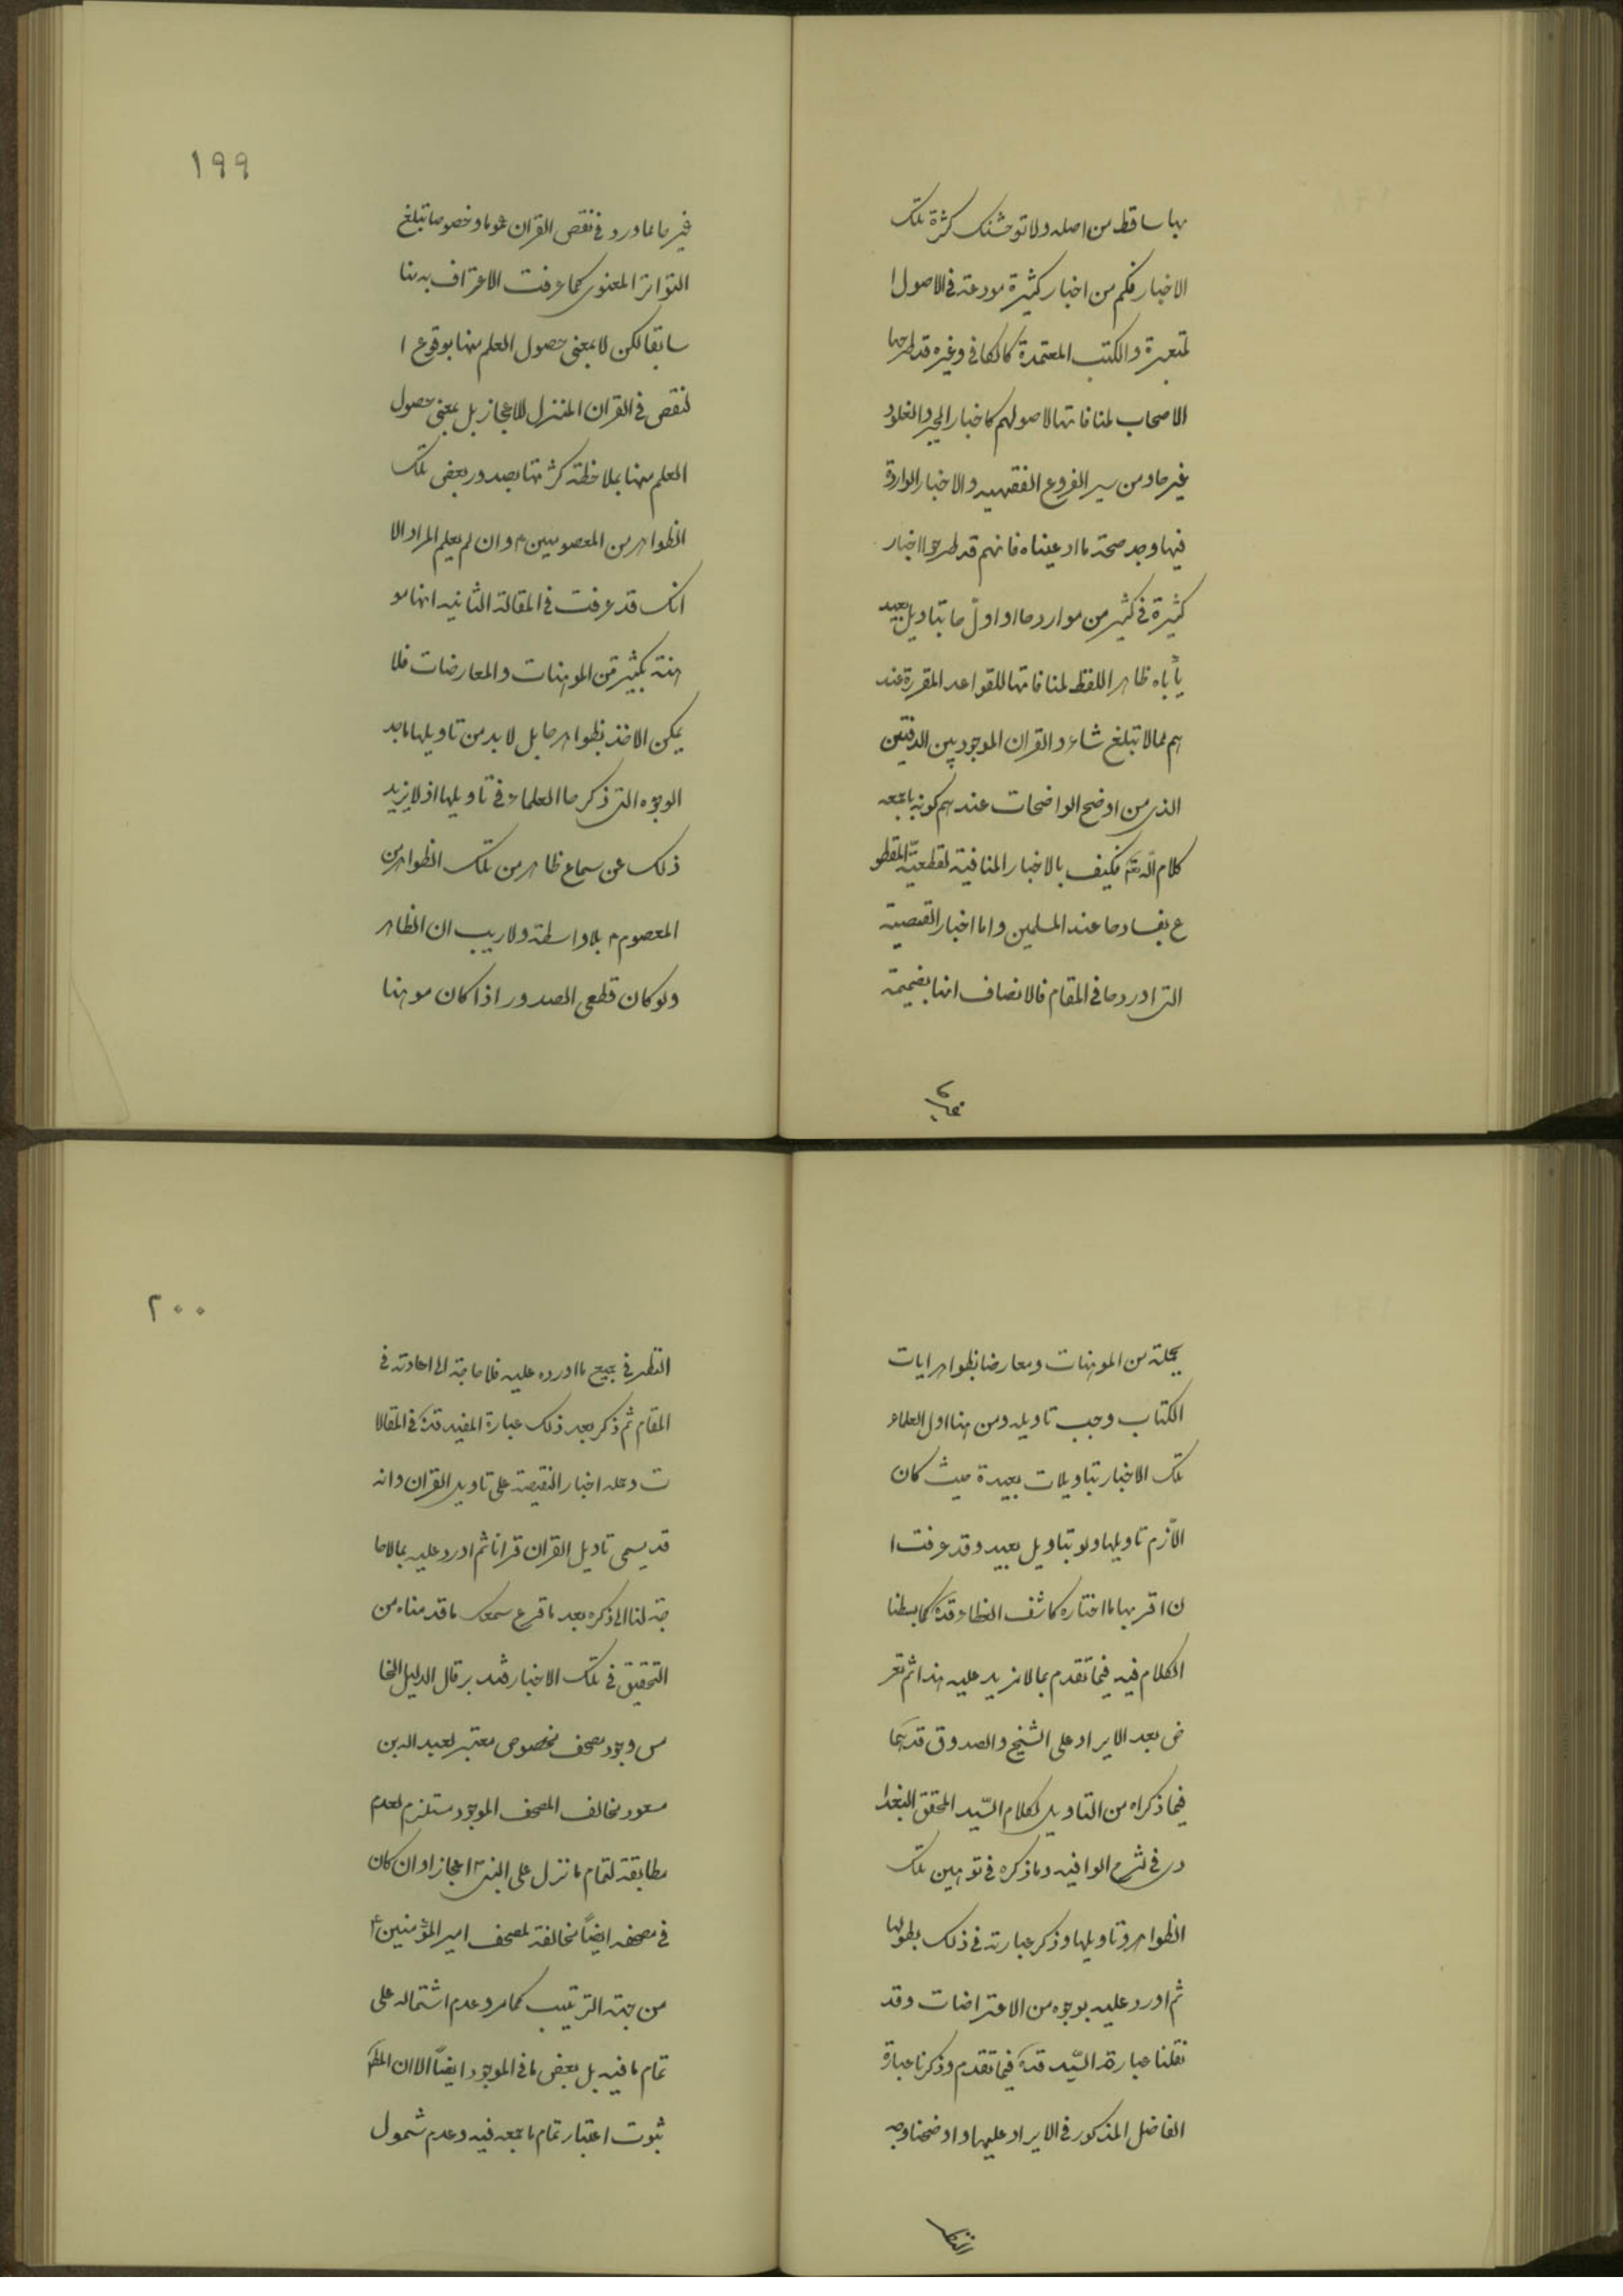 بها ساقط من اصله ولا توحشنك كثرة تلك
الاخبار فكم من اخبار كثيرة مودعة فى الاصول ا
لمعتبرة والكتب المعتمدة كالكافى وغيره قد طرحها
الاصحاب لمنافاتها لاصولهم كاخبار الجبر والغلو و
غيرها ومن سير الفروع الفقهيه والاخبار الواردة
فيها وجد صحة ما ادعيناه فانهم قد طرحوا اخبار
كثيرة فى كثير من مواردها او اولوها بتاويل بعيد
يأباه ظاهر اللفظ لمنافاتها للقواعد المقررة عند
هم لما لا تبلغ شاءو القران الموجود بين الدفتين
الذى من اوضح الواضحات عندهم كونه باجمعه
كلام الله تعالى فكيف بالاخبار المنافية لقطعية المقطو
ع بفسادها عند المسلمين واما اخبار النقيصة
التى اوردها فى المقام فالانصاف انها بضميمة
غيرها
١٩٩
غيرها مما ورد فى نقص القران عموما وخصوصا تبلغ
التواتر المعنوى كما عرفت الاعتراف به منا
سابقا لكن لا بمعنى حصول العلم منها بوقوع ا
لنقص فى القران المنزل للاعجاز بل بمعنى حصول
العلم منها بملاحظة كثرتها بصدور بعض تلك
الظواهر من المعصومين ع وان لم يعلم المراد الا
انك قد عرفت فى المقالة الثانيه انها مو
هنة بكثير من الموهنات والمعارضات فلا
يمكن الاخذ بظواهرها بل لا بد من تاويلها باحد
الوجوه التى ذكرها العلماء فى تاويلها اذ لا يزيد
ذلك عن سماع ظاهر من تلك الظواهر من
المعصوم ع بلا واسطة ولا ريب ان الظاهر
ولو كان قطعى الصدور اذا كان موهنا
بجملة من الموهنات ومعارضا بظواهر ايات
الكتاب وجب تاويله ومن هنا اول العلماء
تلك الاخبار بتاويلات بعيدة حيث كان
الازم تاويلها ولو بتاويل بعيد وقد عرفت ا
ن اقربها ما اختاره كاشف الغطاء قده كما بسطنا
الكلام فيه فيما تقدم بما لا مزيد عليه هذا ثم تعر
ض بعد الايراد على الشيخ والصدوق قدهما
فيما ذكراه من التاويل لكلام السيد المحقق البغدا
دى فى شرح الوافيه وما ذكره فى توهين تلك
الظواهر وتاويلها وذكر عبارته فى ذلك بطولها
ثم اورد عليه بوجوه من الاعتراضات وقد
نقلنا عبارة السيد قده فيما تقدم وذكرنا عبارة
الفاضل المذكور فى الايراد عليها واوضحنا وجه
النظر
٢٠٠
النظر فى جميع ما اورده عليه فلا حاجة الى اعادته فى
المقام ثم ذكر بعد ذلك عبارة المفيد قده فى المقالا
ت وحمله اخبار النقيصة على تاويل القران وانه
قد يسمى تاويل القران قرانا ثم اورد عليه بما لا حا
جة لنا الى ذكره بعد ما قرع سمعك ما قدمناه من
التحقيق فى تلك الاخبار فتدبر قال الدليل الخا
مس وجود مصحف مخصوص معتبر لعبد الله بن
مسعود مخالف المصحف الموجود مستلزم لعدم
مطابقته لتمام ما نزل على النبى ص اعجازا وان كان
فى مصحفه ايضاً مخالفة لمصحف امير المؤمنين ع
من جهة الترتيب كما مر وعدم اشتماله على
تمام ما فيه بل بعض ما فى الموجود ايضاً الا ان المطم
ثبوت اعتبار تمام ما جمعه فيه وعدم شمول